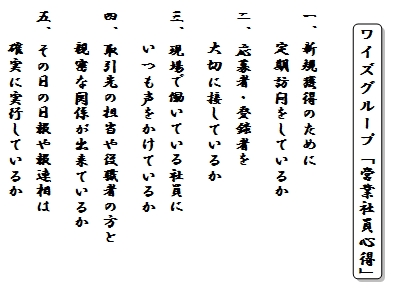 ワイズグループ「営業社員心得」
一、新規獲得のために
定期訪問をしているか
二、応募者・登録者を
大切に接しているか
三、現場で働いている社員に
いつも声をかけているか
四、取引先の担当や役職者の方と
親密な関係が出来ているか
五、その日の日報や報連相は
確実に実行しているか